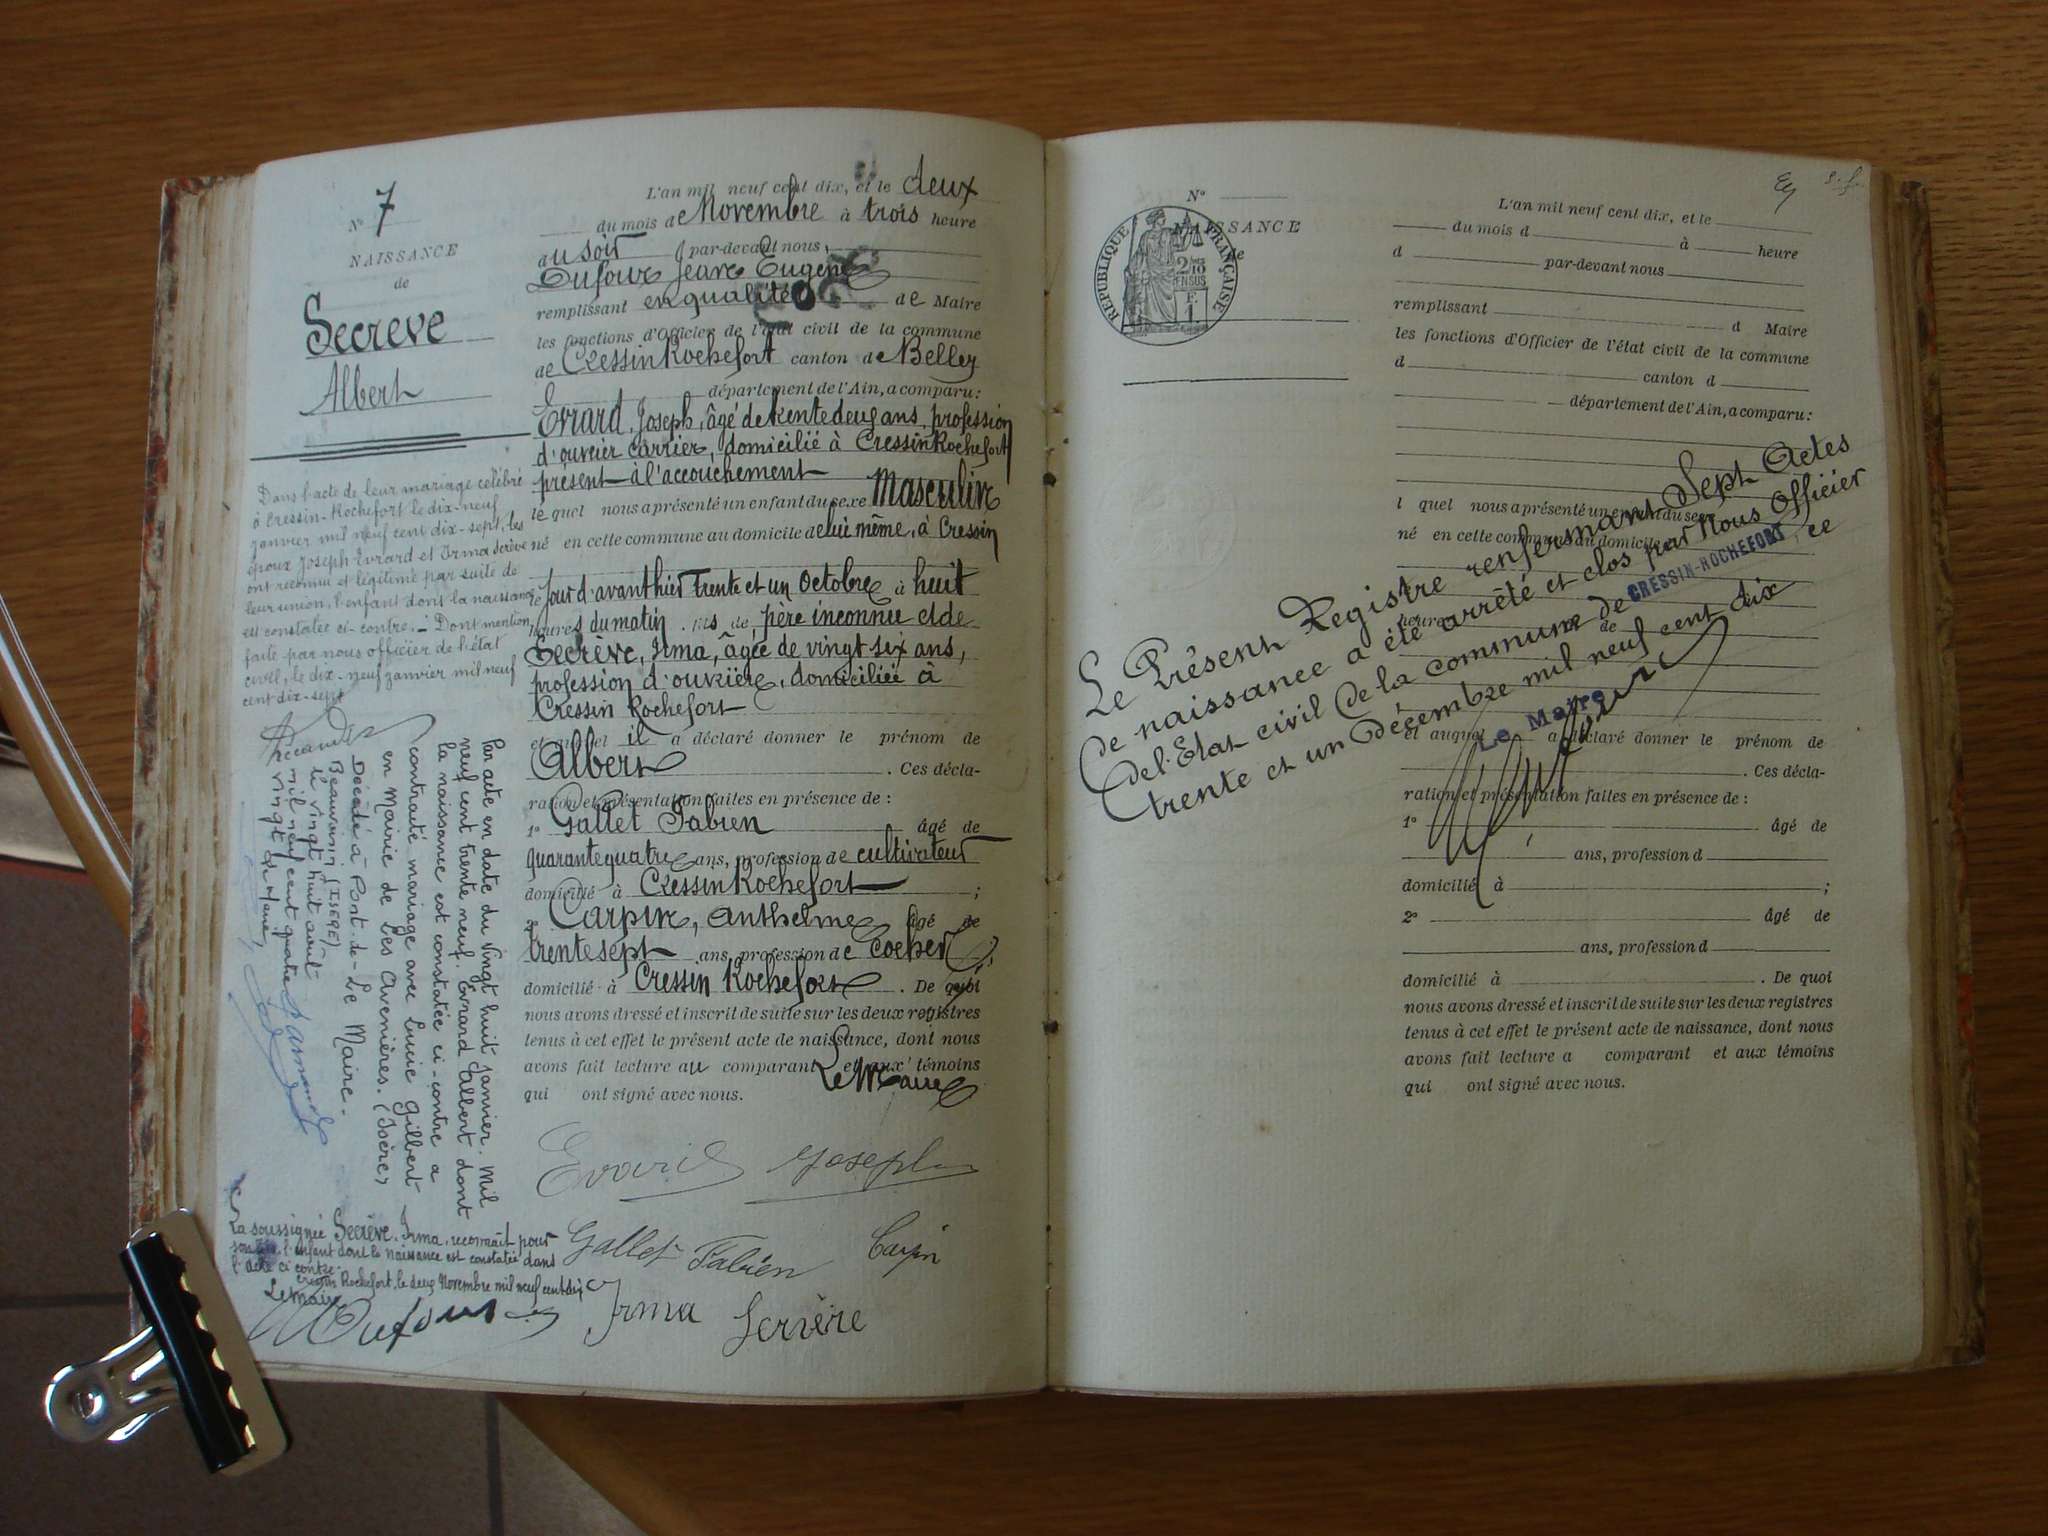 N° 7
NAISSANCE
de
Secrève
Albert
Dans l'acte de leur mariage célébré
à Cressin-Rochefort le dix-neuf
janvier mil neuf cent dix-sept, les
époux Joseph Evrard et Irma Secrève
ont reconnu et légitimé par suite de
leur union, l'enfant dont la naissance
est constatée ci-contre. _ Dont mention
faite par nous officier de l'état
civil, le dix-neuf janvier mil neuf
cent dix-sept
Par acte en date du Vingt huit janvier. Mil
neuf cent trente neuf. Evrard Albert dont
la naissance est constatée ci-contre a
contracté mariage avec Lucie Gilbert
en Mairie de Les Avenières. (Isère)
Le Maire.
Décédé à Pont-de-
Beauvoisin (ISERE)
le vingt huit août
mil neuf cent quatre
vingt
La soussignée Secrève, Irma, reconnaît pour
son fils l'enfant dont la naissance est constatée dans
l'acte ci contre
Cressin Rochefort, le deux Novembre mil neuf cent dix
Le Maire
Dufour
L'an mil neuf cent dix, et le deux
du mois de Novembre à trois heure
du soir par-devant nous
Dufour Jean Eugène
remplissant en qualité de Maire
les fonctions d'Officier de l'état civil de la commune
de Cressin Rochefort canton de Belley
département de l'Ain, a comparu:
Evrard, Joseph, âgé de trente deux ans, profession
d'ouvrier carrier, domicilié à Cressin Rochefort
présent à l'accouchement
le quel nous a présenté un enfant du sexe Masculin
né en cette commune au domicile de lui même, à Cressin
le jour d'avant hier Trente et un Octobre à huit
heures du matin, fils de père inconnu et de
Secrève, Irma, âgée de vingt six ans,
profession d'ouvrière, domiciliée à
Cressin Rochefort
et auquel il a déclaré donner le prénom de
Albert . Ces décla-
ration et présentation faites en présence de :
1° Gallet Fabien âgé de
quarante quatre ans, profession de cultivateur
domicilié à Cressin Rochefort ;
2° Carpin, Anthelme âgé de
trente sept ans, profession de cocher
domicilié à Cressin Rochefort . De quoi
nous avons dressé et inscrit de suite sur les deux registres
tenus à cet effet le présent acte de naissance, dont nous
avons fait lecture au comparant et aux témoins
qui ont signé avec nous.
Le Maire
Evard Joseph
Gallet Fabien Carpin
Irma Servère
N°
NAISSANCE
de
RÉPUBLIQUE FRANÇAISE
2/10
EN SUS
F.
1
L'an mil neuf cent dix, et le
du mois d à heure
d par-devant nous
remplissant d Maire
les fonctions d'Officier de l'état civil de la commune
d canton d
département de l'Ain, a comparu:
l quel nous a présenté un enfant du sexe
né en cette commune au domicile
heure
de
et auquel a déclaré donner le prénom de
. Ces décla-
ration et présentation faites en présence de :
1° âgé de
ans, profession d
domicilié à ;
2° âgé de
ans, profession d
domicilié à . De quoi
nous avons dressé et inscrit de suite sur les deux registres
tenus à cet effet le présent acte de naissance, dont nous
avons fait lecture a comparant et aux témoins
qui ont signé avec nous.
Le Présent Registre renfermant Sept Actes
de naissance a été arrêté et clos par Nous Officier
de l'Etat civil de la commune de CRESSIN-ROCHEFORT, ce
trente et un Décembre mil neuf cent dix
Le Maire